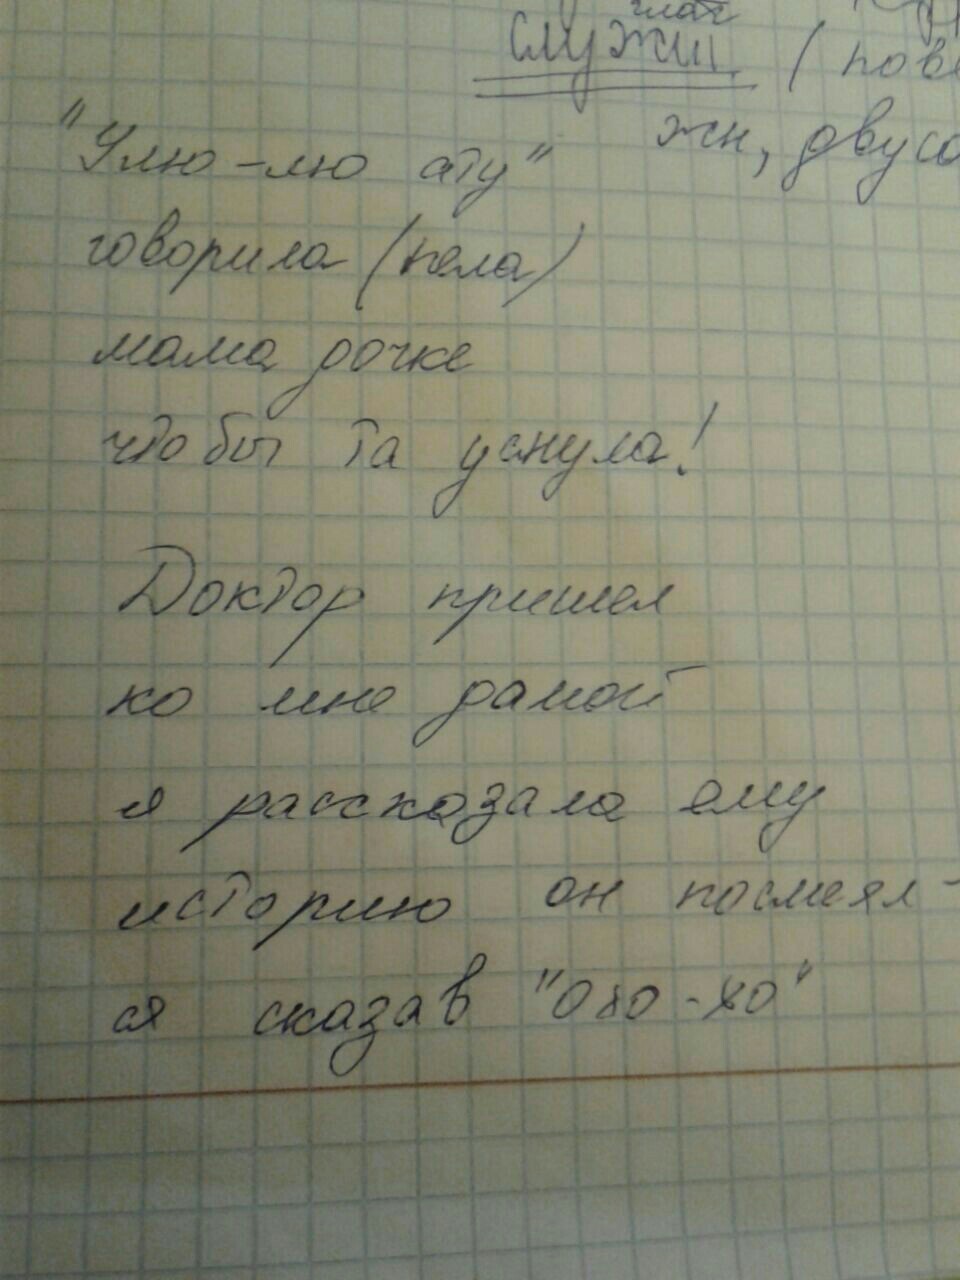 глаг
служи (пове
жи, двусо
"Улю-лю ату"
говорила (пела)
мама дочке
чтобы та уснула!
Доктор пришел
ко мне дамой
я рассказала ему
историю он посмеял-
ся сказав "Охо-хо"